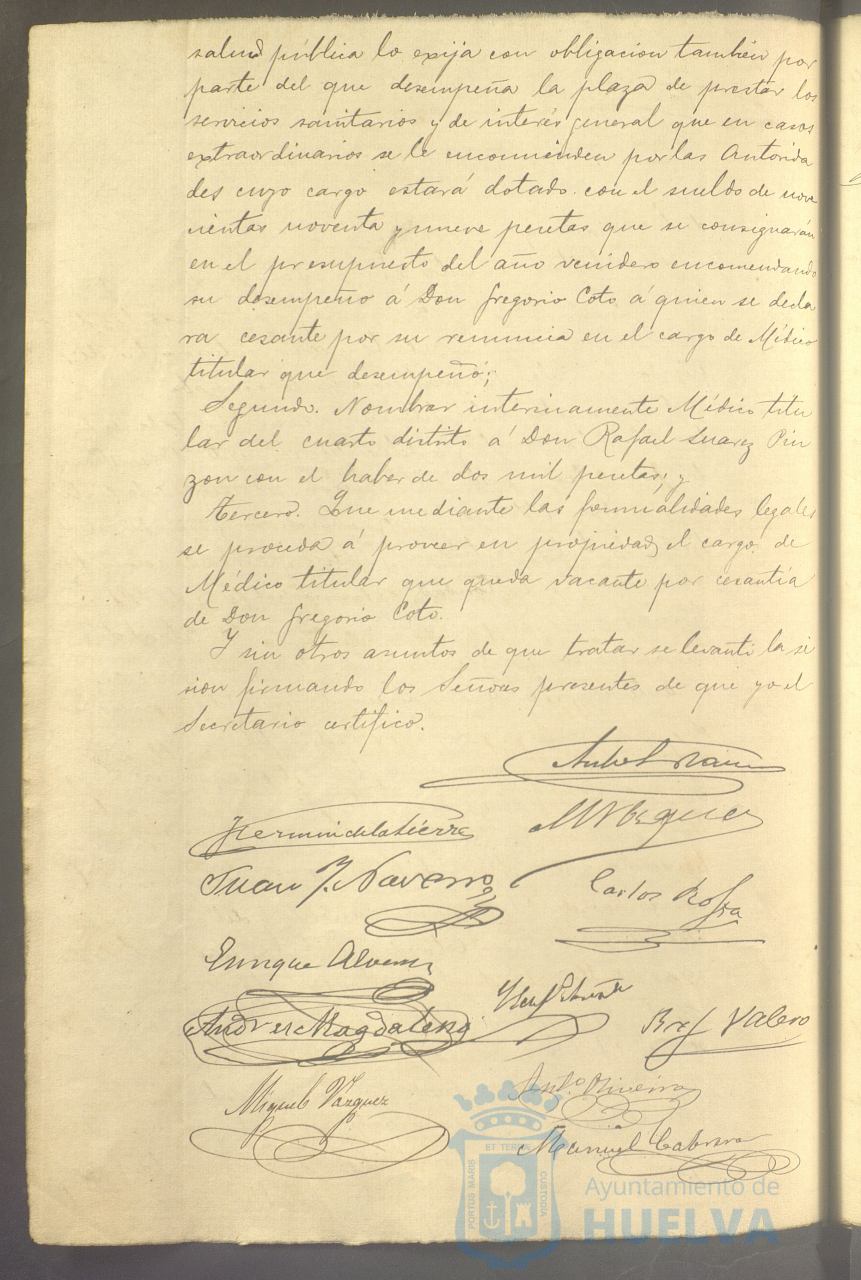 salud pública lo exija con obligacion también por
parte del que desempeña la plaza de prestar los
servicios sanitarios y de interés general que en casos
extraordinarios se le encomienden por las Autorida
des cuyo cargo estará dotado con el sueldo de nove
cientas noventa y nueve pesetas que se consignarán
en el presupuesto del año venidero encomendando
su desempeño á Don Gregorio Coto á quien se decla
ra cesante por su renuncia en el cargo de Médico
titular que desempeñó;
Segundo. Nombrar interinamente Médico titu
lar del cuarto distrito á Don Rafael Suarez Pin
zon con el haber de dos mil pesetas; y
Tercero. Que mediante las formalidades legales
se proceda á proveer en propiedad el cargo de
Médico titular que queda vacante por cesantía
de Don Gregorio Coto.
Y sin otros asuntos de que tratar se levantó la se
sion firmando los Señores presentes de que yo el
Secretario certifico.
Fermin de la Sierra
Juan J. Navarro
Carlos
Enrique
Andres Magdalena
Valero
Miguel Vázquez
Anto. Oliveira
Manuel Cabrera
PORTUS MARIS ET TERRAE CUSTODIA
Ayuntamiento de
HUELVA